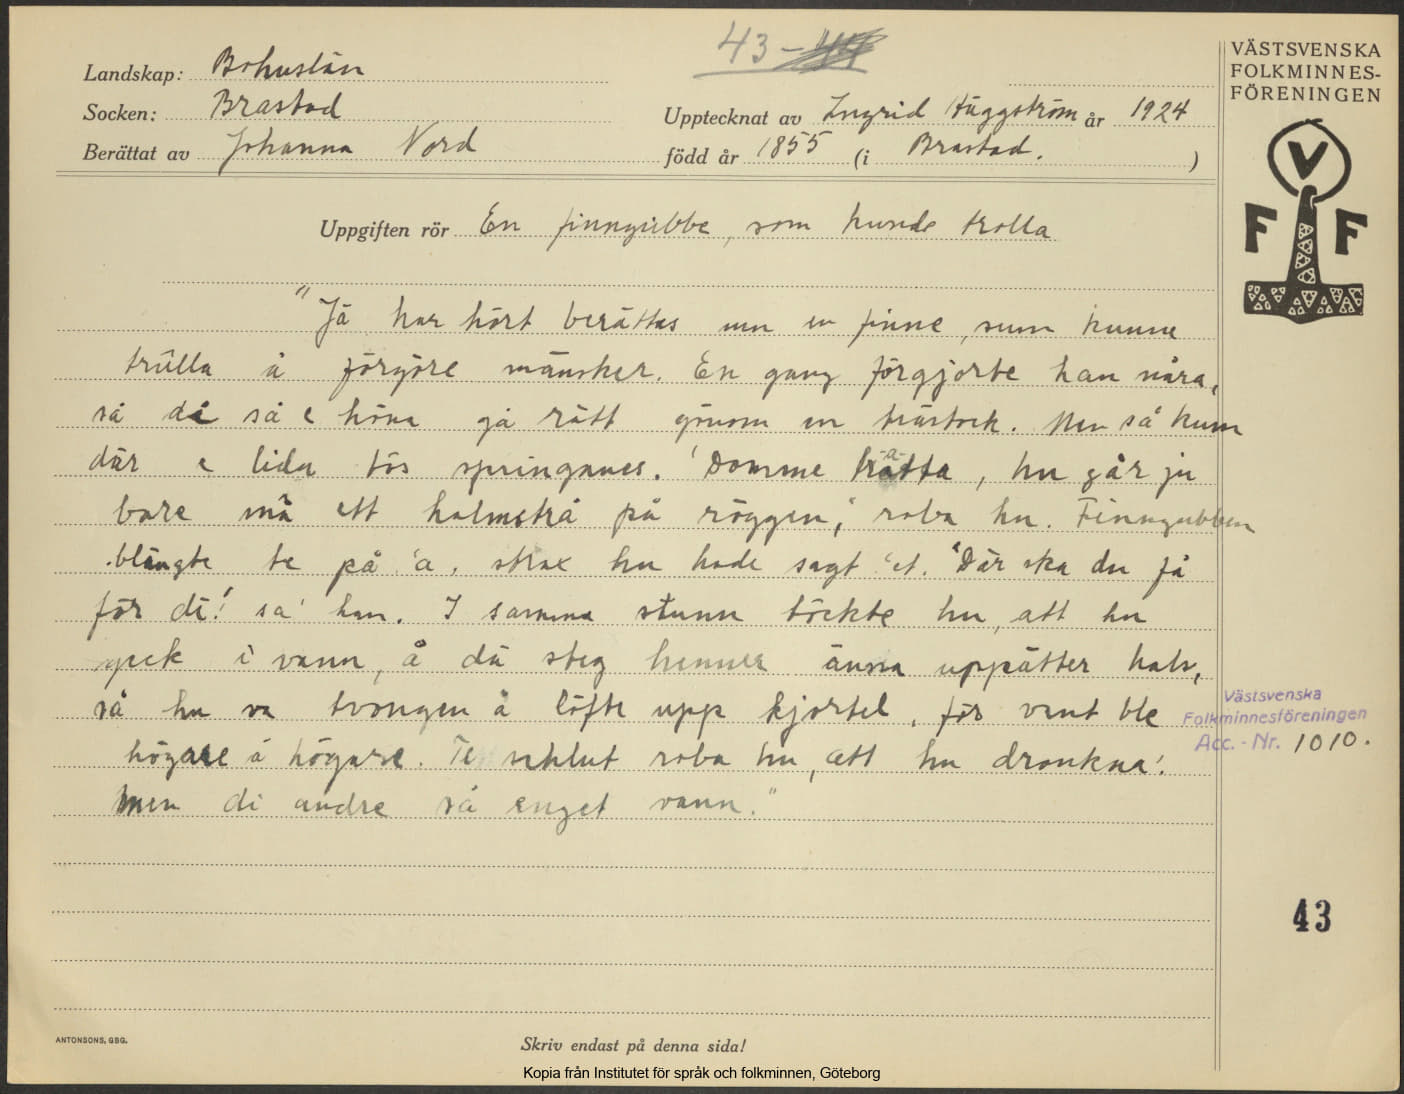 43-
VÄSTSVENSKA
FOLKMINNES-
FÖRENINGEN
Landskap: Bohuslän
Socken: Brastad
Upptecknat av Ingrid Häggström år 1924
Berättat av Johanna Nord
född år 1855 (i Brastad. )
V
F F
Uppgiften rör En finngubbe, som kunde trolla
"Jä har hört berättas um en finne, sum kunne
trülla å förgöre mänsker. En gang förgjorte han nåra,
så då så e höna gå rätt génom en trästock. Men så kum
där e lida tös springanes. 'Domme hratta, hu går ju
bare mä ett halmstrå på röggen,' roba hu. Finngubben
blängte te på 'a, strax hu hade sagt 'et. 'Där ska du få
för di!' sa' han. I samma stunn töckte hu, att hu
geck i vann, å då steg henner änna uppätter hals,
så hu va tvongen å löfte upp kjortel, för vent ble
högare å högare. Te schlut roba hu, att hu dronkna'.
Men di andre så enget vann."
Västsvenska
Folkminnesföreningen
Acc.-Nr. 1010.
43
ANTONSONS, GBG.
Skriv endast på denna sida!
Kopia från Institutet för språk och folkminnen, Göteborg